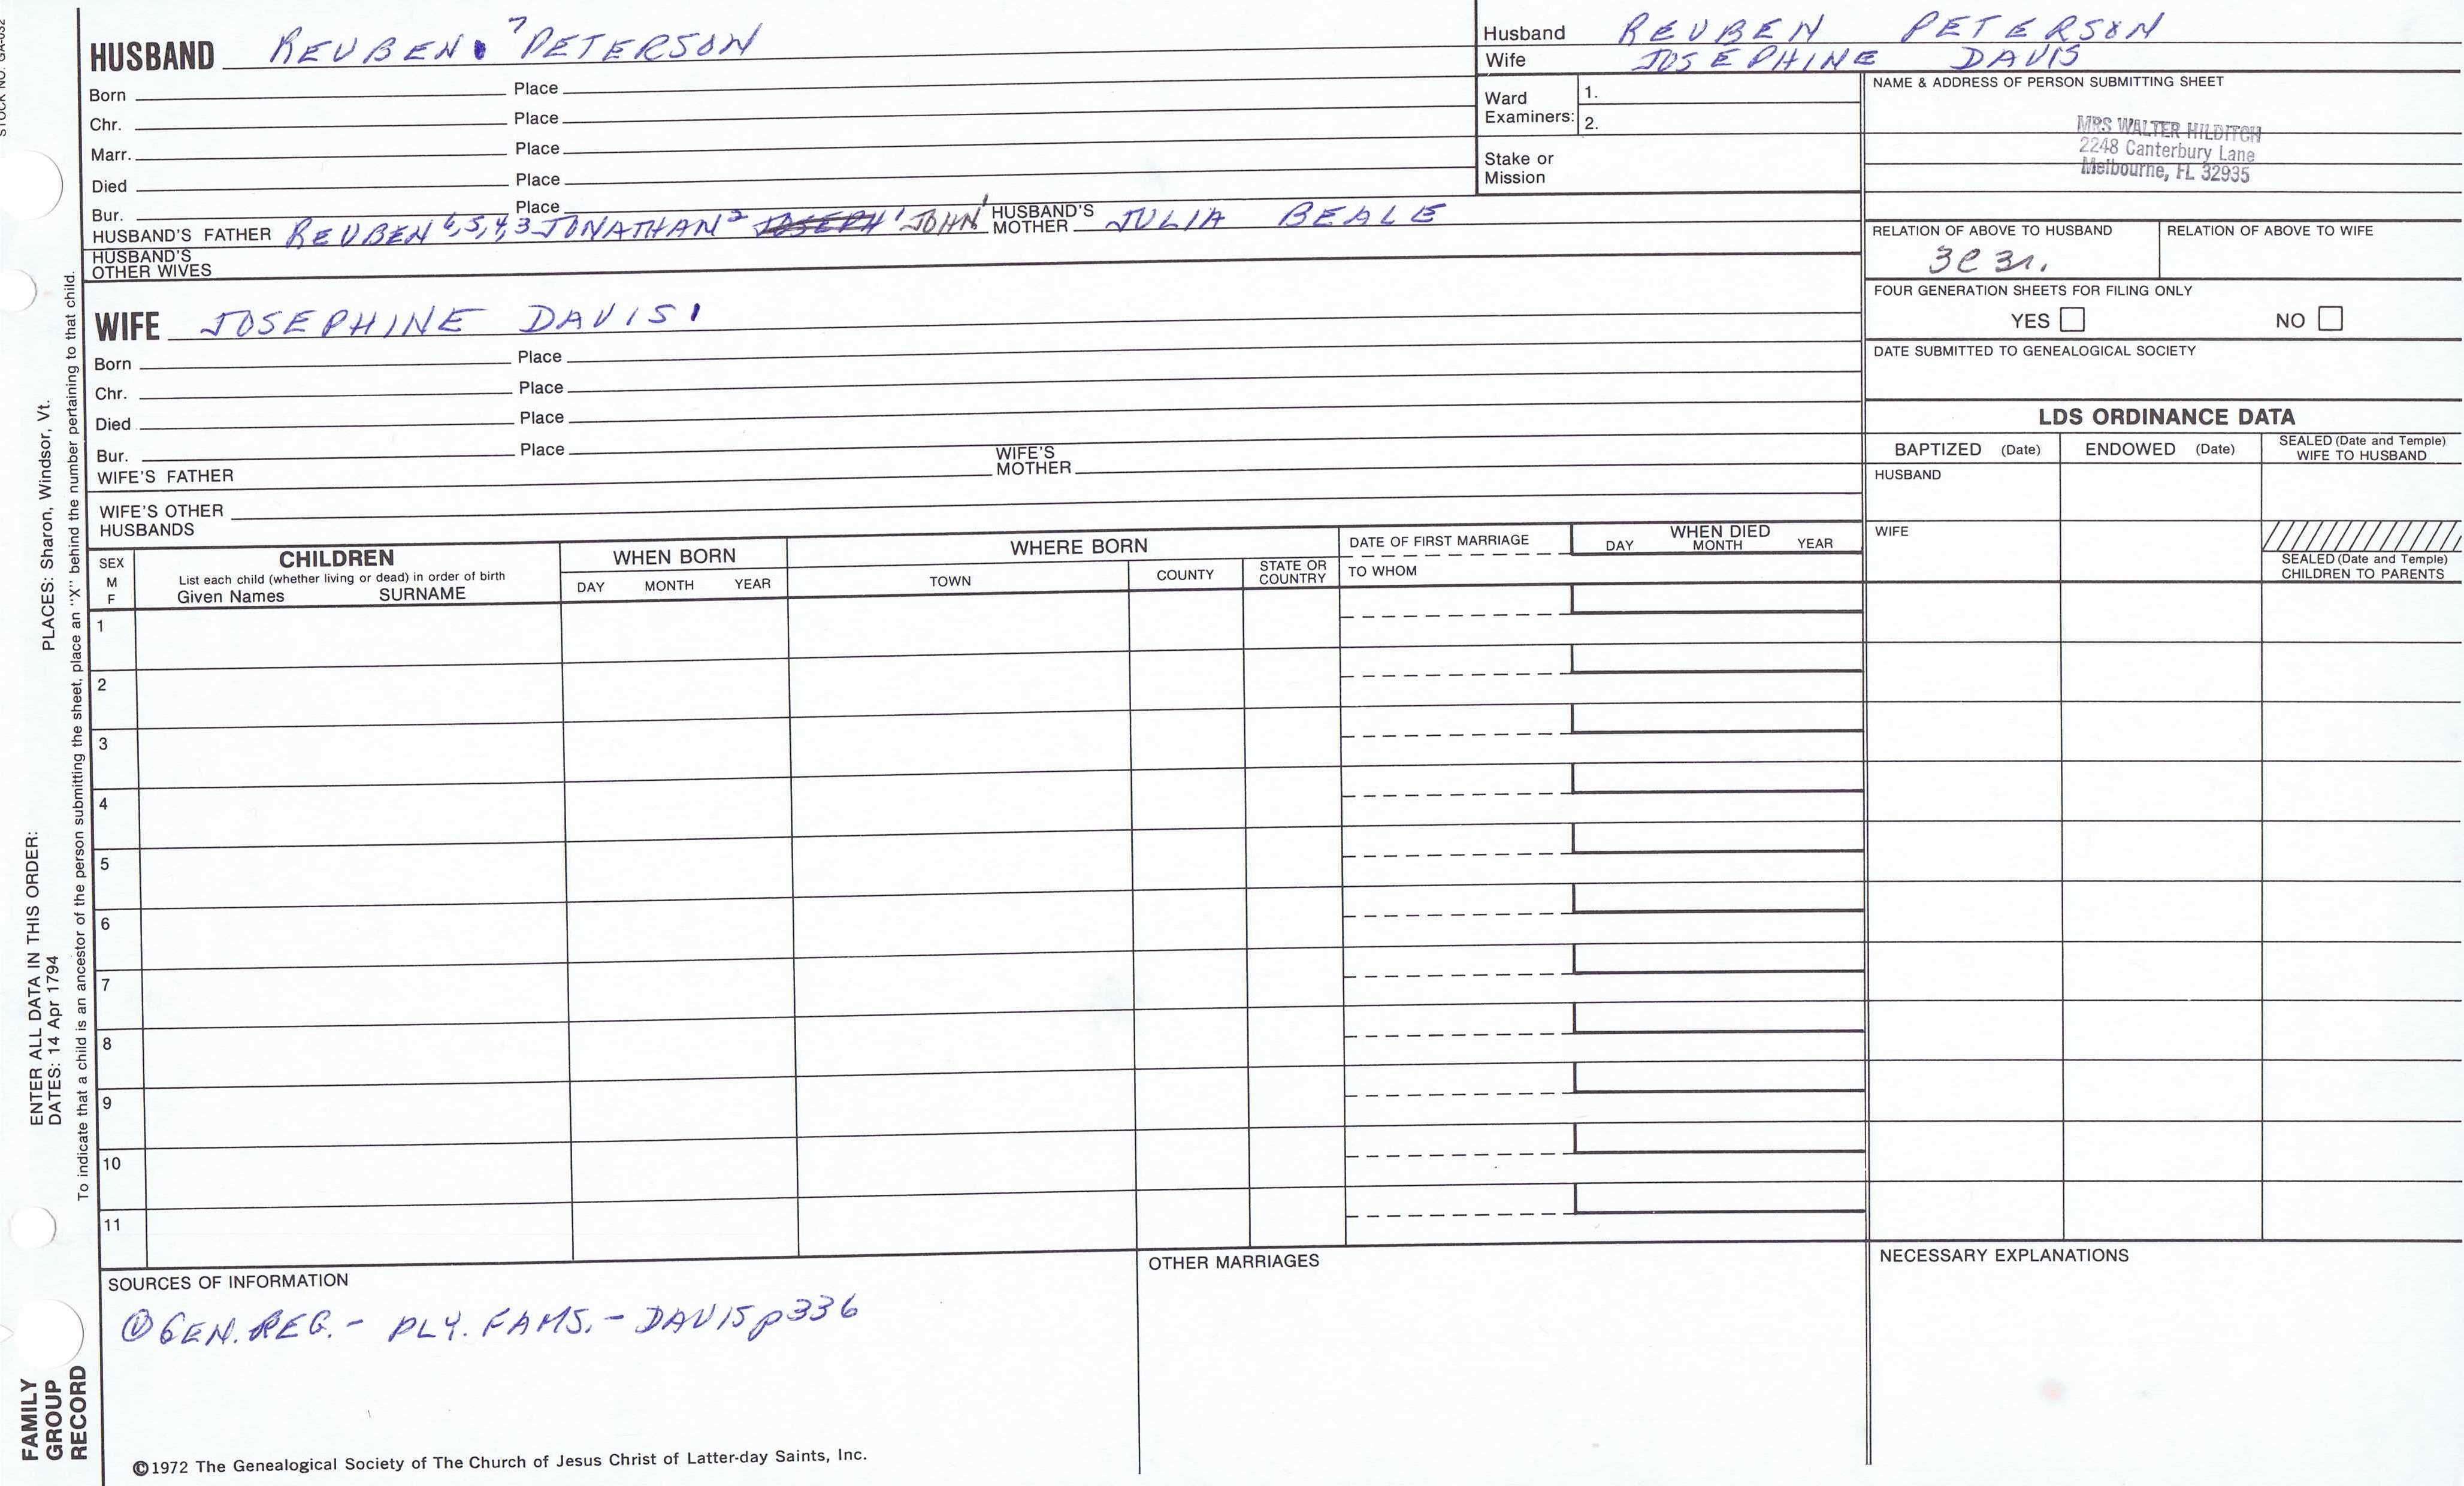 STOCK NO. GA-032
HUSBAND REUBEN ¹ ⁷ PETERSON
Born Place
Chr. Place
Marr. Place
Died Place
Bur. Place
HUSBAND'S FATHER REUBEN 6,5,4,3 JONATHAN² JOHN¹ HUSBAND'S MOTHER JULIA BEALE
HUSBAND'S OTHER WIVES
WIFE JOSEPHINE DAVIS ¹
Born Place
Chr. Place
Died Place
Bur. Place
WIFE'S FATHER WIFE'S MOTHER
WIFE'S OTHER HUSBANDS
Husband REUBEN PETERSON
Wife JOSEPHINE DAVIS
Ward Examiners: 1.
2.
Stake or Mission
NAME & ADDRESS OF PERSON SUBMITTING SHEET
MRS WALTER HILDITCH
2248 Canterbury Lane
Melbourne, FL 32935
RELATION OF ABOVE TO HUSBAND RELATION OF ABOVE TO WIFE
3C3r.
FOUR GENERATION SHEETS FOR FILING ONLY
YES NO
DATE SUBMITTED TO GENEALOGICAL SOCIETY
LDS ORDINANCE DATA
BAPTIZED (Date) ENDOWED (Date) SEALED (Date and Temple) WIFE TO HUSBAND
HUSBAND
WIFE
SEALED (Date and Temple) CHILDREN TO PARENTS
SEX M F
CHILDREN
List each child (whether living or dead) in order of birth
Given Names SURNAME
WHEN BORN
DAY MONTH YEAR
WHERE BORN
TOWN COUNTY STATE OR COUNTRY
DATE OF FIRST MARRIAGE
TO WHOM
WHEN DIED
DAY MONTH YEAR
1
2
3
4
5
6
7
8
9
10
11
SOURCES OF INFORMATION
① GEN. REG. - PLY. FAMS. - DAVIS p336
OTHER MARRIAGES
NECESSARY EXPLANATIONS
©1972 The Genealogical Society of The Church of Jesus Christ of Latter-day Saints, Inc.
ENTER ALL DATA IN THIS ORDER:
DATES: 14 Apr 1794 PLACES: Sharon, Windsor, Vt.
To indicate that a child is an ancestor of the person submitting the sheet, place an "X" behind the number pertaining to that child.
FAMILY
GROUP
RECORD